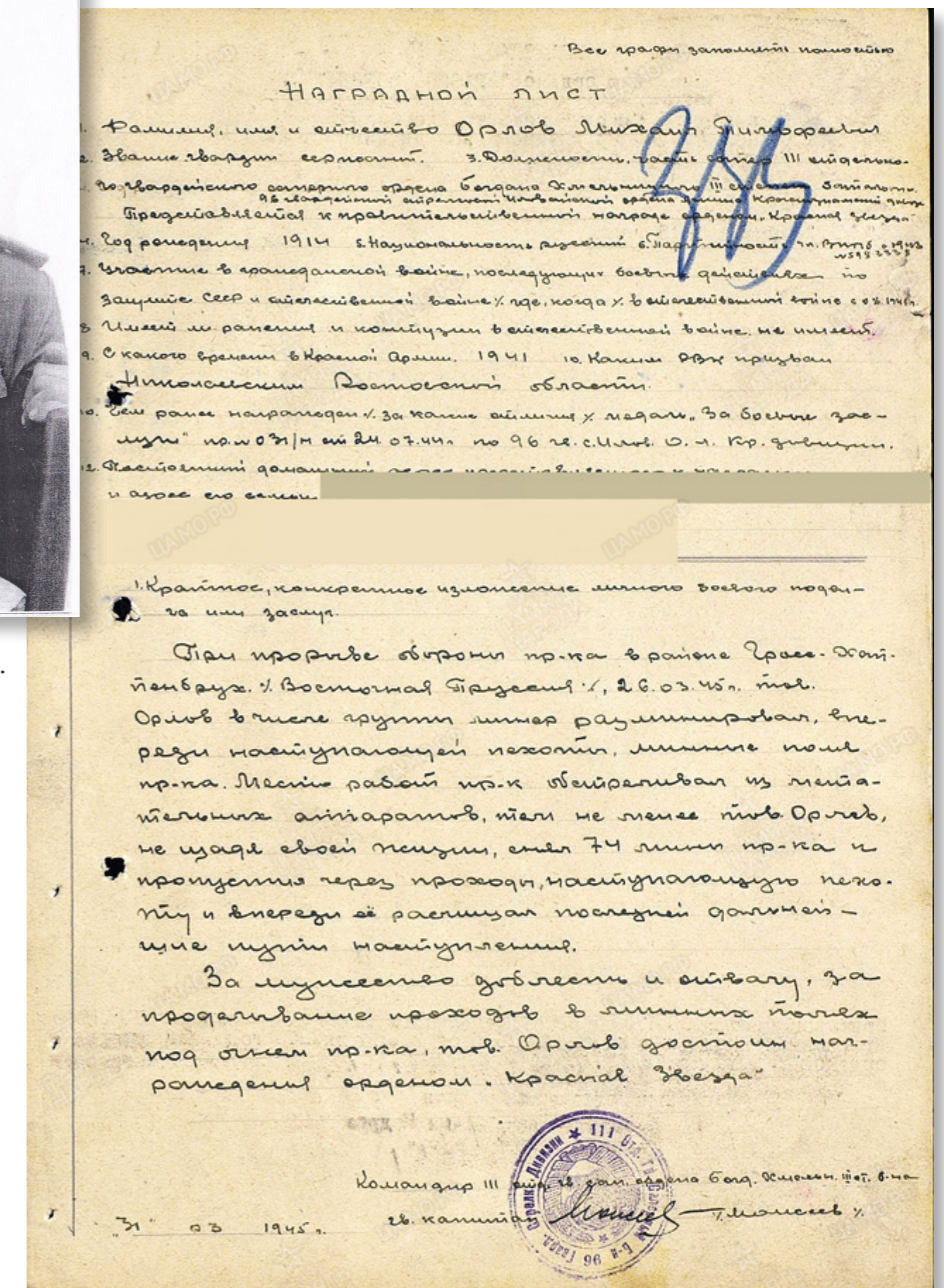 Все графы заполнять полностью
НАГРАДНОЙ ЛИСТ
1. Фамилия, имя и отчество Орлов Михаил Тимофеевич
2. Звание гвардии сержант. 3. Должность, часть сапер 111 отдельно-
го гвардейского саперного ордена Богдана Хмельницкого III степени батальона
96 гвардейской стрелковой Иловайской ордена Ленина Краснознаменной дивизии
Представляется к правительственной награде орденом „Красная Звезда"
4. Год рождения 1914 5. Национальность русский 6. Партийность чл. ВКП/б с 1943
7. Участие в гражданской войне, последующих боевых действиях по
защите СССР и отечественной войне % где, когда % в отечественной войне с
8. Имеет ли ранения и контузии в отечественной войне. не имеет.
9. С какого времени в Красной Армии. 1941 10. Каким РВК призван
Николаевским Ростовской области.
10. Чем ранее награжден % за какие отличия % медаль „За боевые зас-
луги" пр. № 031/н от 24.07.44г. по 96 гв. с. Илов. О. Л. Кр. дивизии.
12. Постоянный домашний адрес
и адрес его семьи
1. Краткое, конкретное изложение личного боевого подви-
га или заслуг.
При прорыве обороны пр-ка в районе Гросс-Хоп-
пенбрух. % Восточная Пруссия %, 26.03.45г. тов.
Орлов в числе группы минер разминировал, впе-
реди наступающей пехоты, минные поля
пр-ка. Место работ пр-к обстреливал из мета-
тельных аппаратов, тем не менее тов. Орлов,
не щадя своей жизни, снял 74 мины пр-ка и
пропустил через проходы, наступающую пехо-
ту и впереди её расчищал последней дальней-
шие пути наступления.
За мужество доблесть и отвагу, за
проделывание проходов в минных полях
под огнем пр-ка, тов. Орлов достоин наг-
раждения орденом „Красная Звезда"
Командир 111 отд. гв. сап. ордена Богд. Хмельн. III ст. б-на
гв. капитан /Моисеев %
„31" 03 1945г.